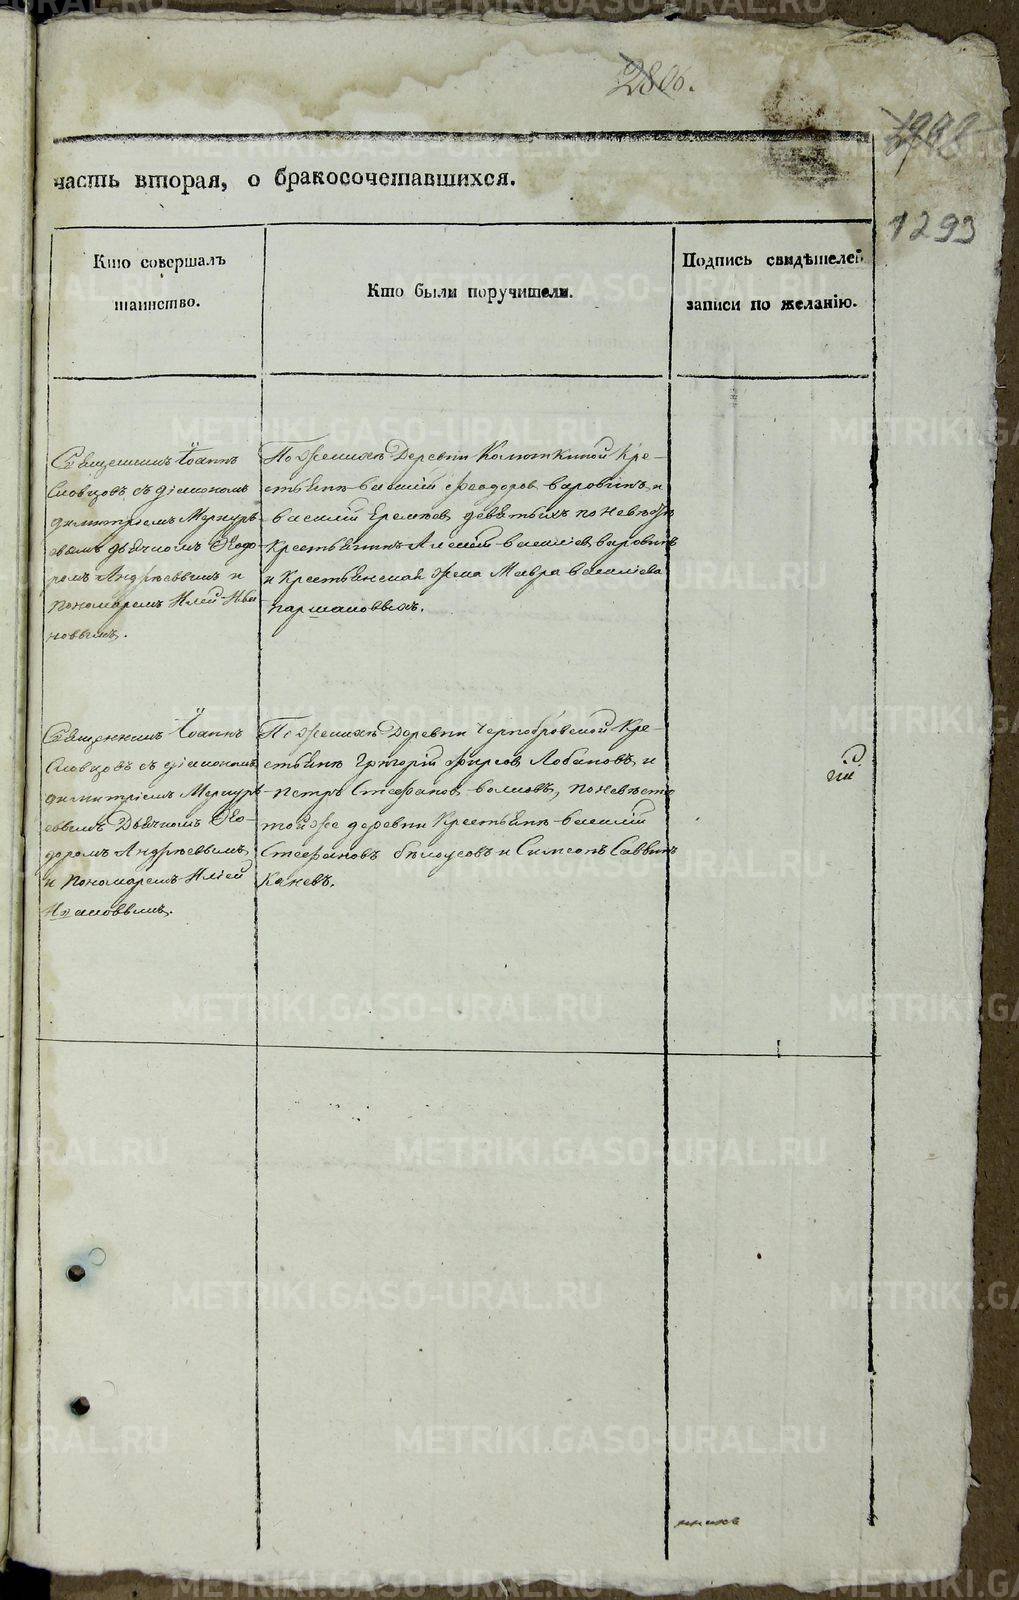 2806.
1293
часть вторая, о бракосочетавшихся.
Кто совершалъ
таинство.
Кто были поручители.
Подпись свидѣтелей
записи по желанію.
Священникъ Іоаннъ
Словцовъ съ діакономъ
Димитріемъ Меркурь
евымъ дьячкомъ Ѳедо
ромъ Андрѣевымъ и
пономаремъ Иліей Ива
новымъ.
По женихѣ Деревни Колюткиной Кре-
стьянѣ Василій Феодоровъ Варовинъ и
Василій Еремѣевъ Девятыхъ по невѣстѣ
Крестьянинъ Алексѣй Василіевъ Варовинъ
и Крестьянская жена Мавра Василіева
Паршаковыхъ.
Священникъ Іоаннъ
Словцовъ съ діакономъ
Димитріемъ Меркурь
евымъ Дьячкомъ Ѳео-
доромъ Андрѣевымъ,
и Пономаремъ Иліей
Ивановымъ.
По женихѣ Деревни Чернобровской Кре-
стьянѣ Григорій Фирсов Лобановъ и
Петръ Стефановъ Волковъ, по невѣсте
той же деревни Крестьянѣ Василій
Стефановъ Бѣлоусовъ и Симеонъ Саввинъ
Каневъ.
METRIKI.GASO-URAL.RU